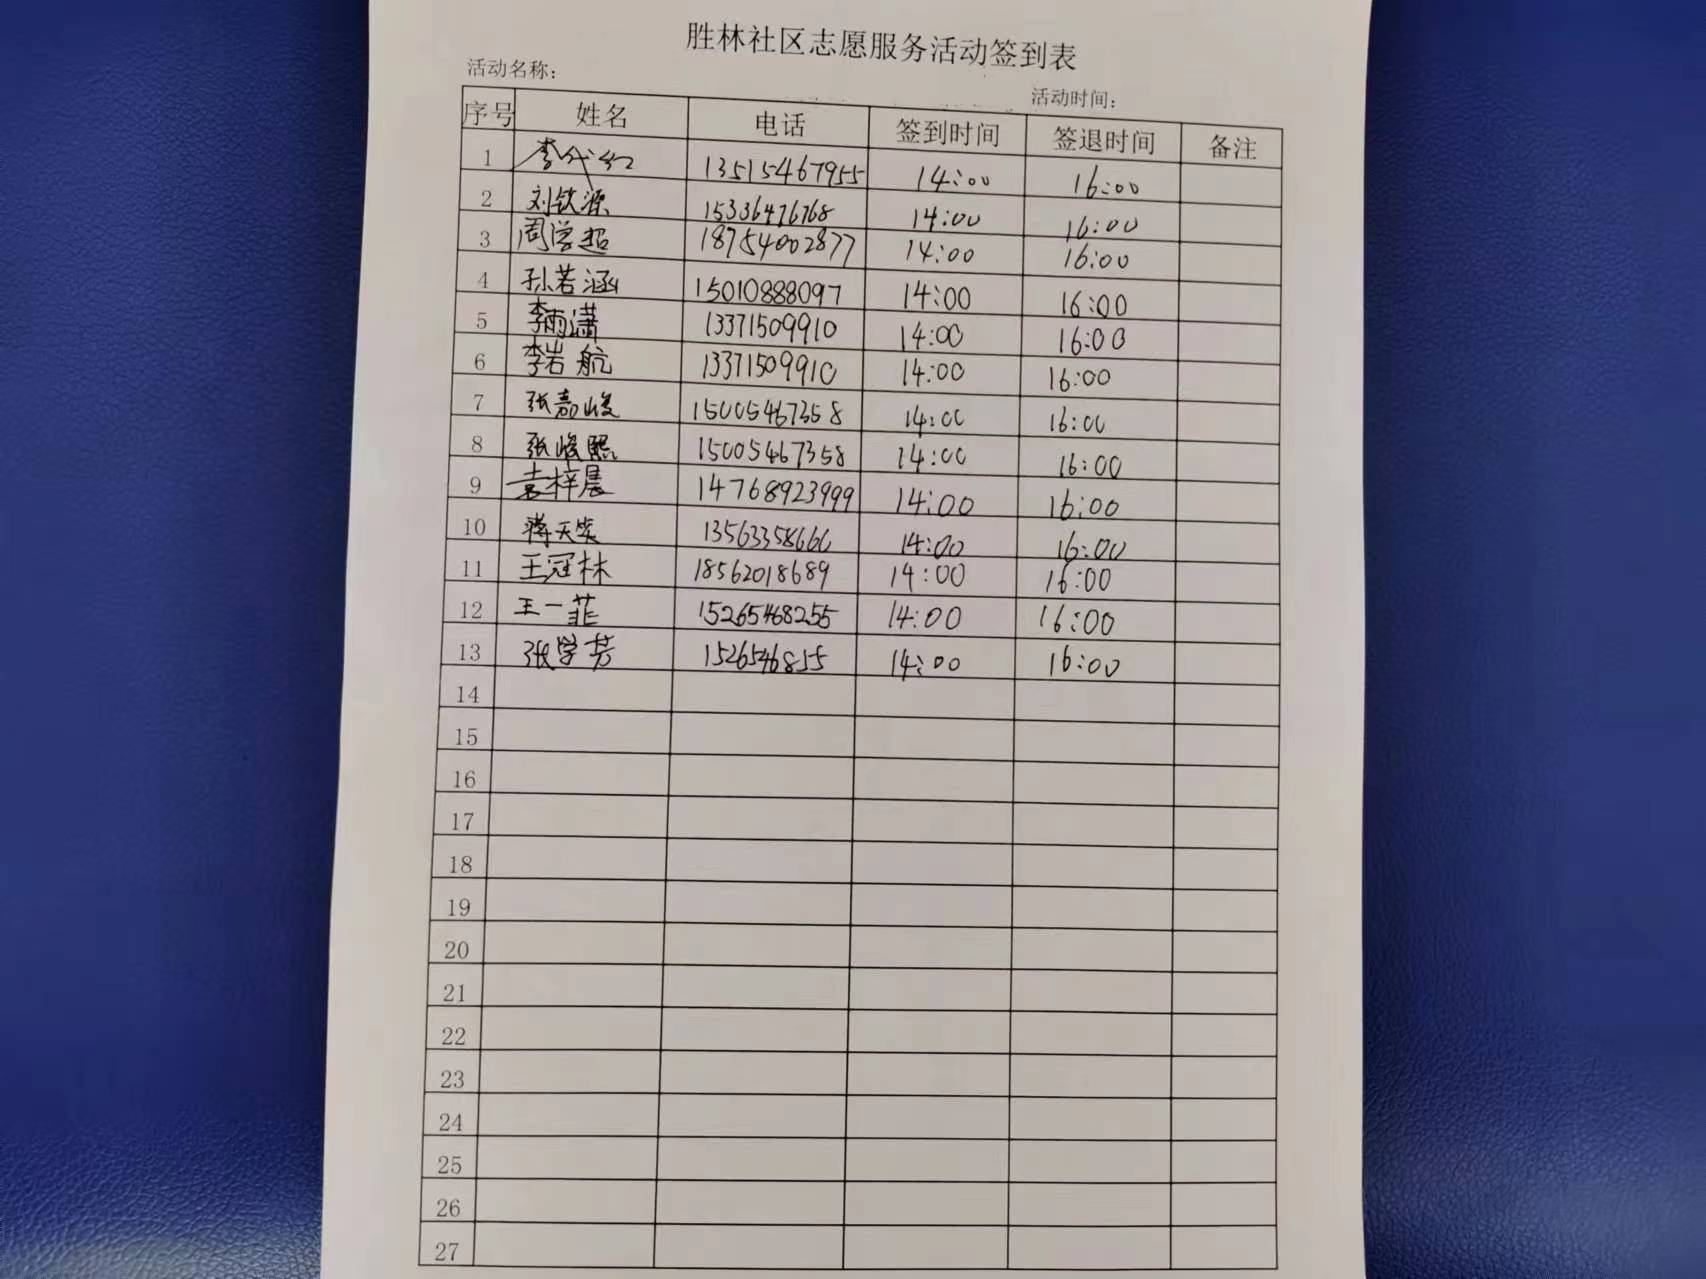 胜林社区志愿服务活动签到表
活动名称： 活动时间：
序号 姓名 电话 签到时间 签退时间 备注
1 李代红 13515467955 14:00 16:00
2 刘钦源 15336476768 14:00 16:00
3 周学超 18754002877 14:00 16:00
4 孙若涵 15010888097 14:00 16:00
5 李雨潇 13371509910 14:00 16:00
6 李岩航 13371509910 14:00 16:00
7 张嘉峻 15005467358 14:00 16:00
8 张峻熙 15005467358 14:00 16:00
9 袁梓晨 14768923999 14:00 16:00
10 蒋天奕 13563358666 14:00 16:00
11 王冠林 18562018689 14:00 16:00
12 王一菲 15265468255 14:00 16:00
13 张学芳 1526546855 14:00 16:00
14
15
16
17
18
19
20
21
22
23
24
25
26
27